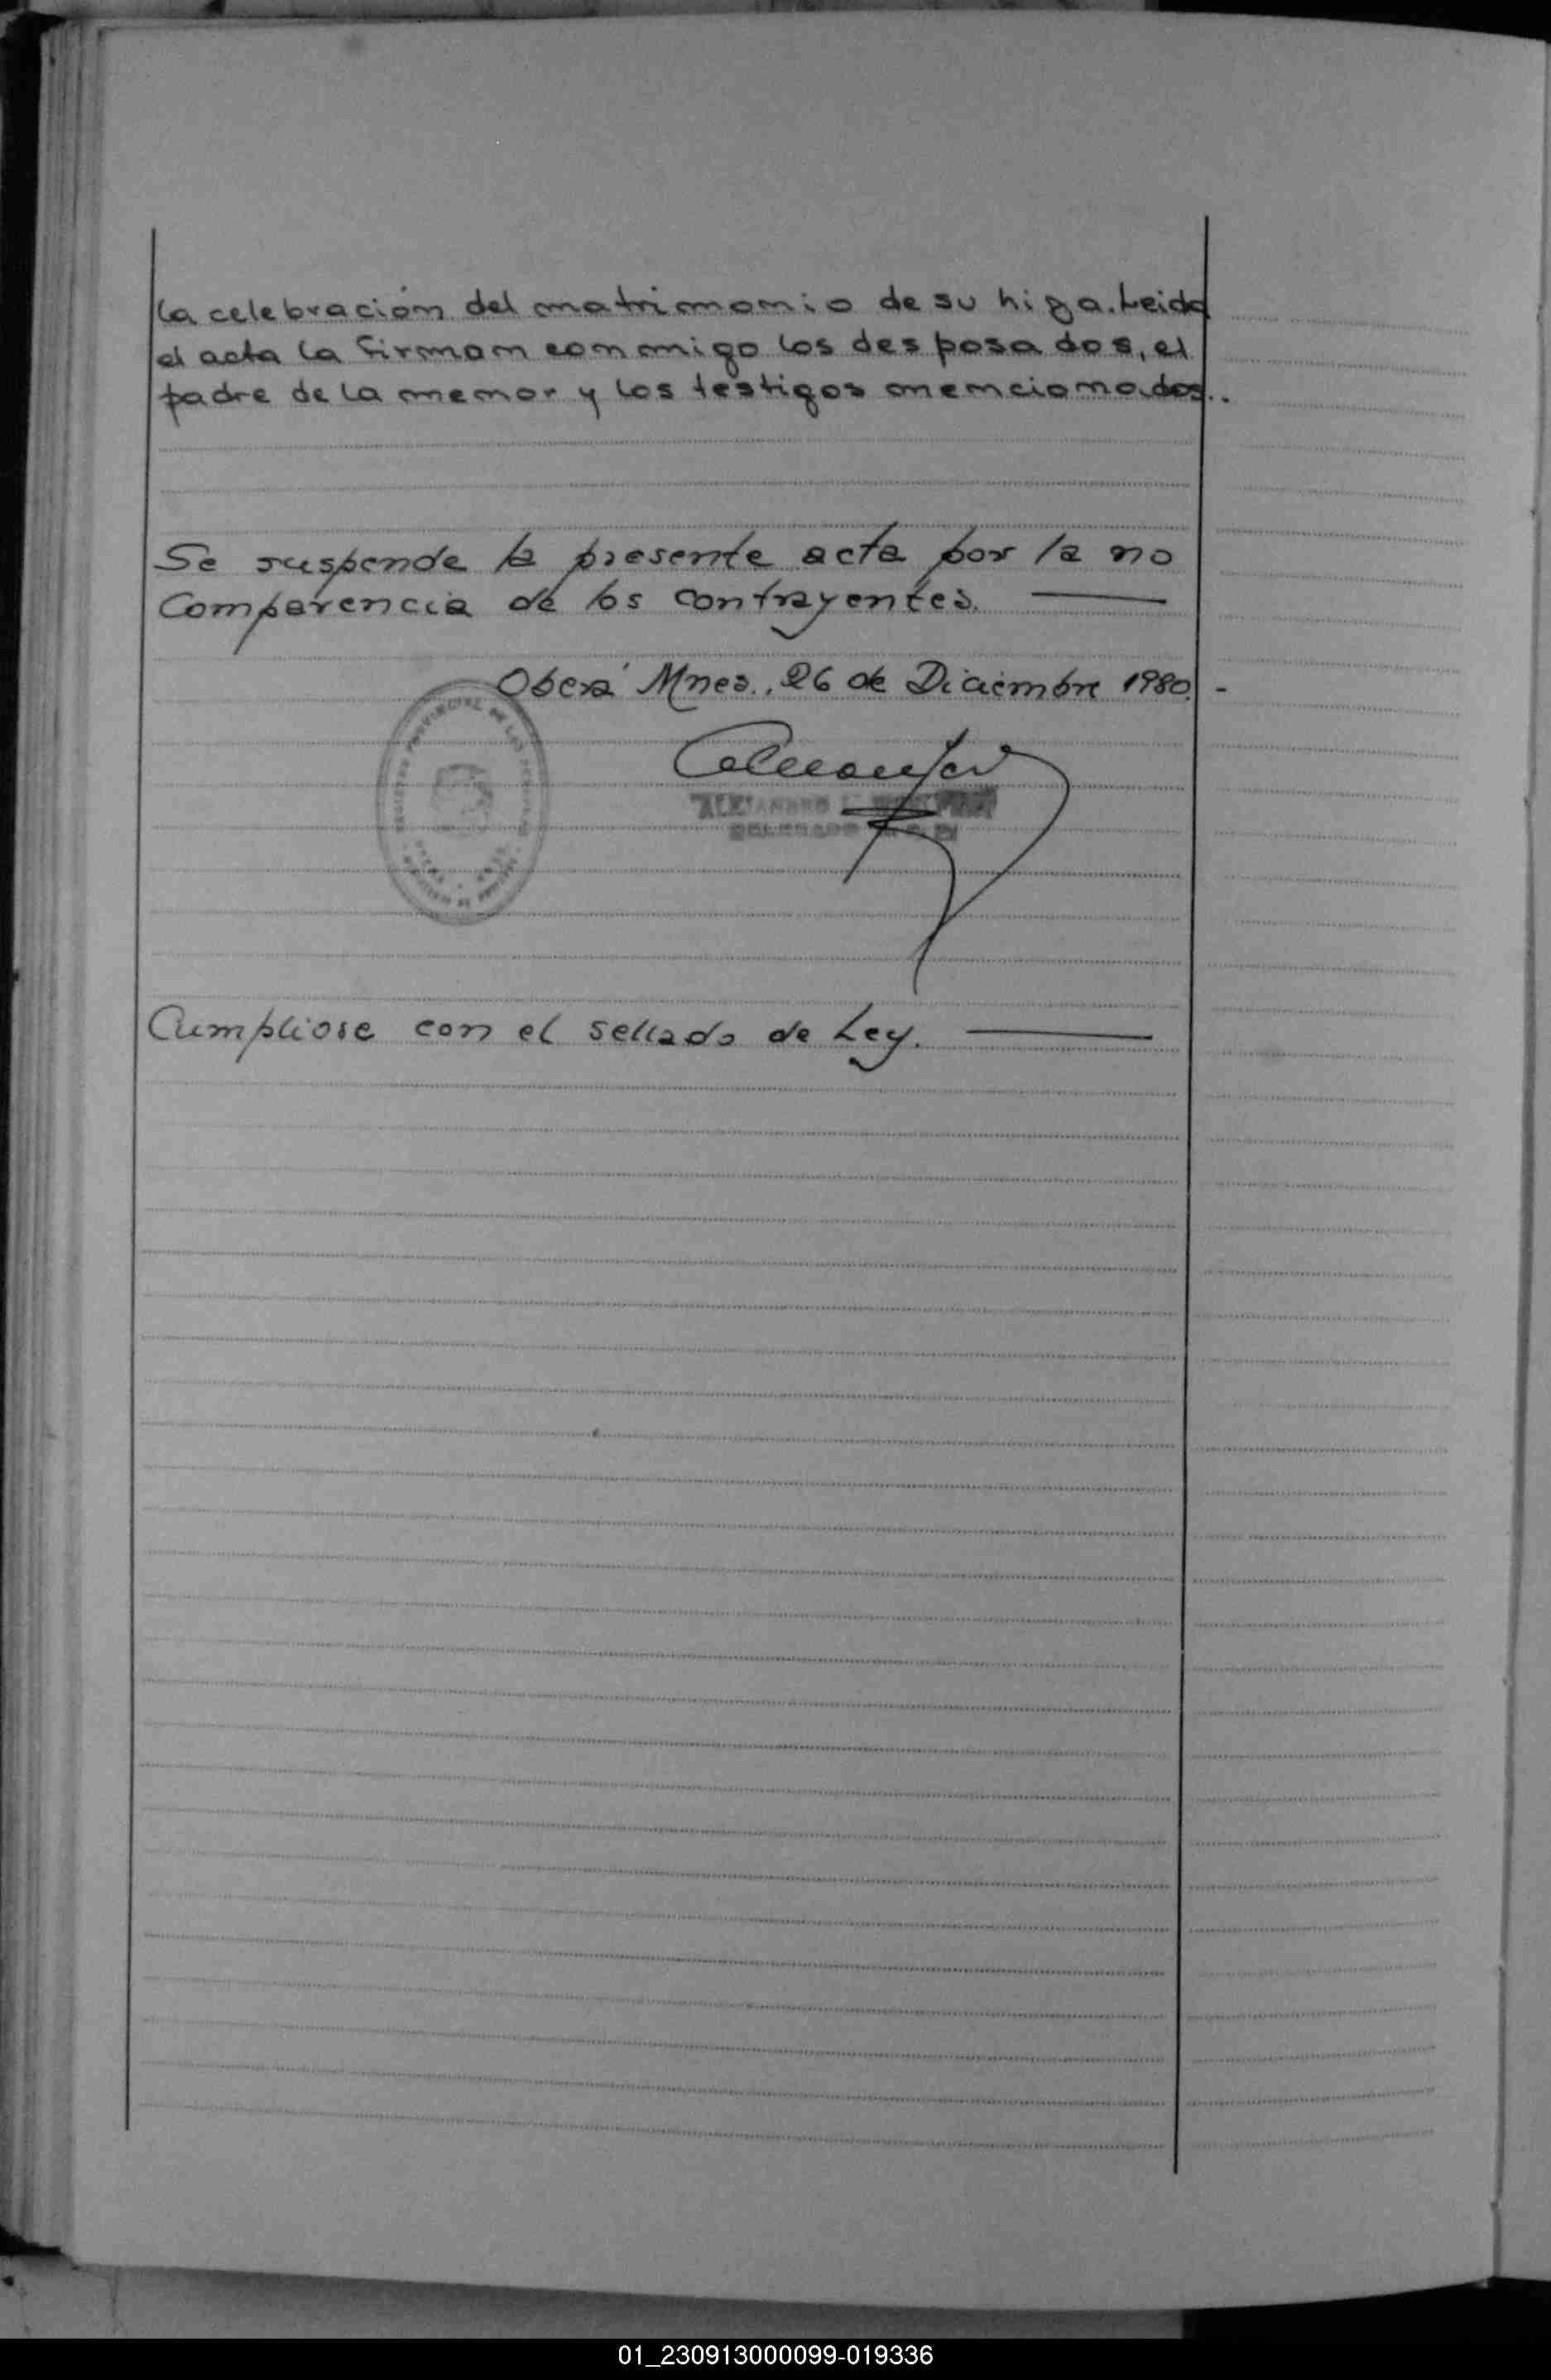 la celebración del matrimonio de su higa. Leida
el acta la firman conmigo los desposados, el
padre de la menor y los testigos mencionados..
Se suspende la presente acta por la no
Comparencia de los contrayentes.
Oberá Mnes., 26 de Diciembre 1980. -
PROVINCIAL DE LAS
ALEJANDRO
DELEGADO
Cumpliose con el sellado de Ley.
01_230913000099-019336